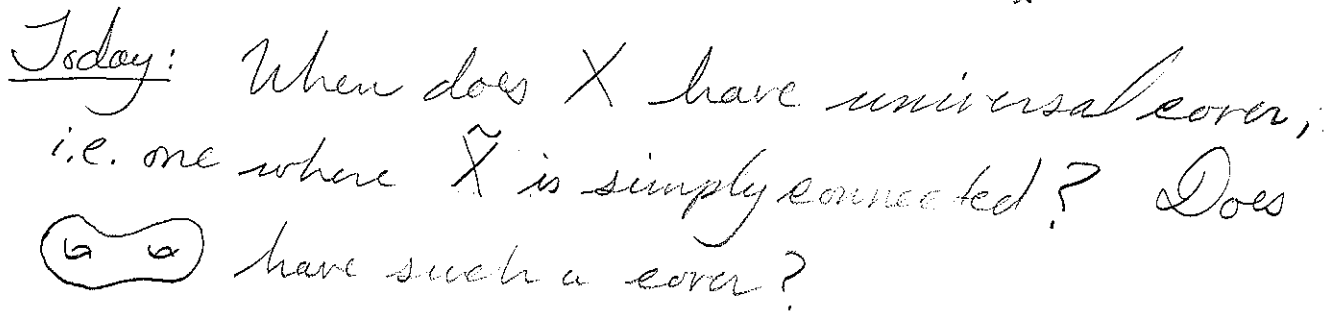 Today: When does X have universal cover,
i.e. one where X̃ is simply connected? Does
have such a cover?